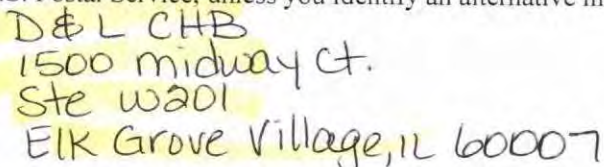 S. Postal Service, unless you identify an alternative m
D&L CHB
1500 midway Ct.
Ste W201
Elk Grove Village, IL 60007